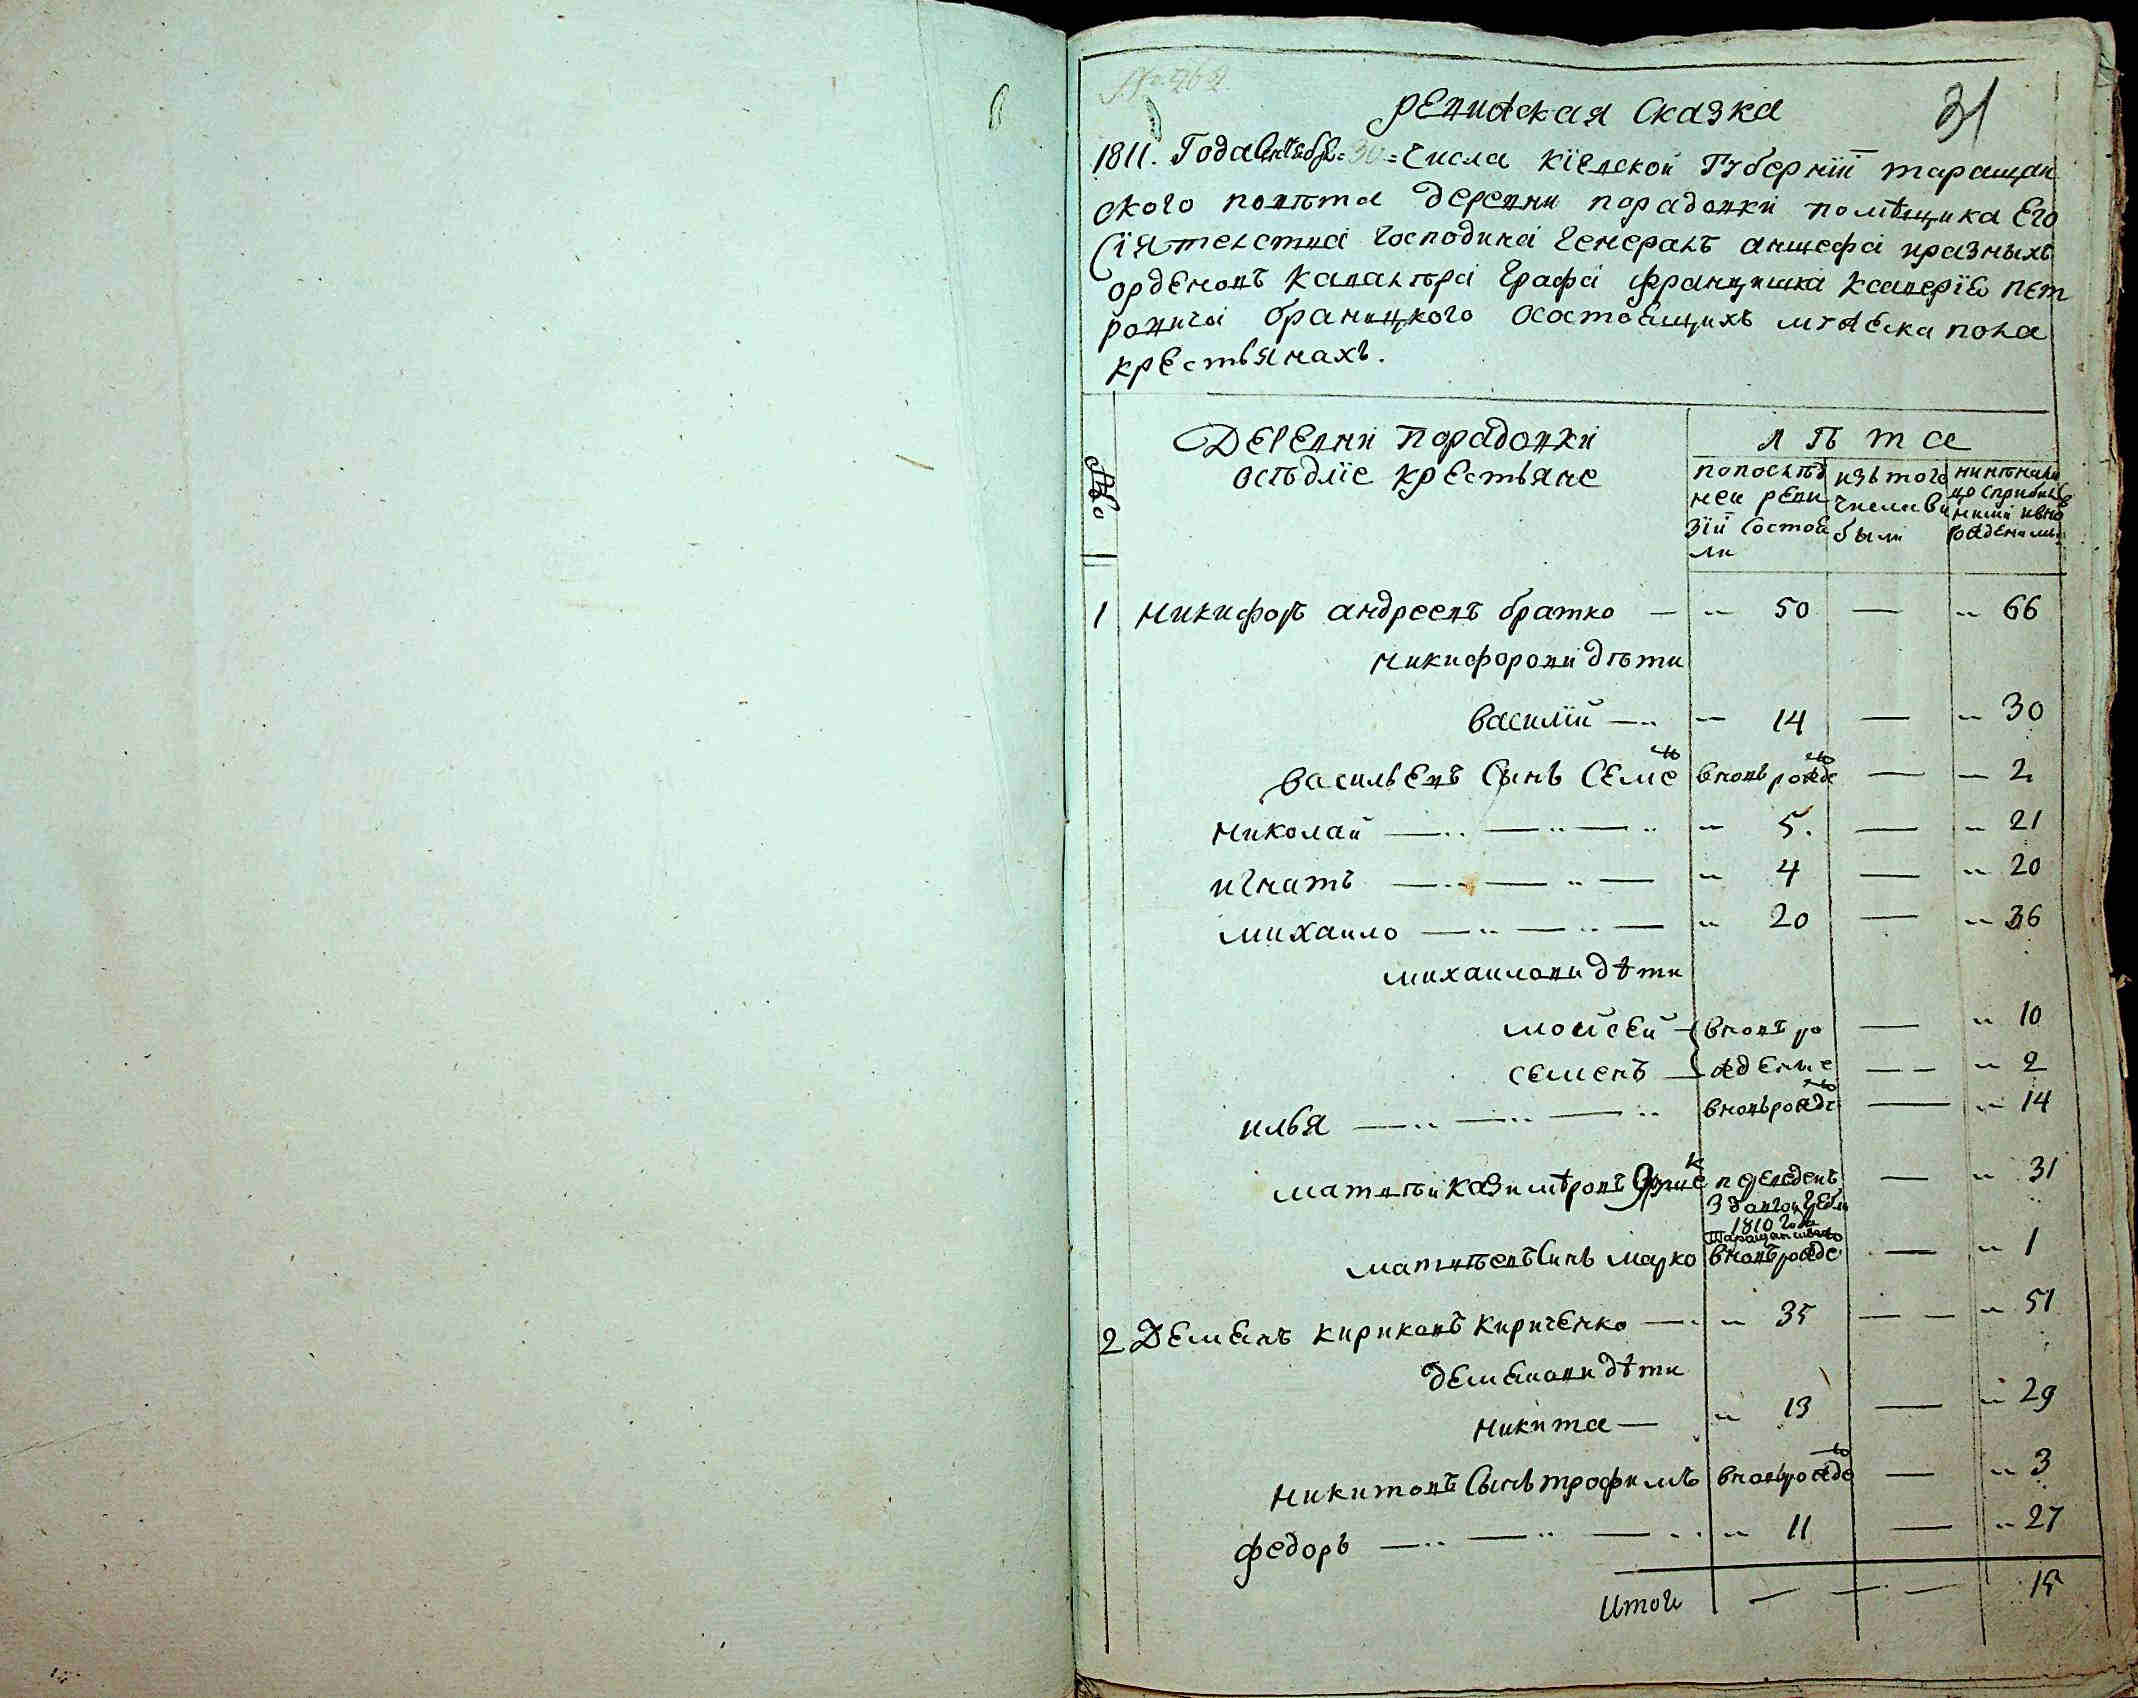 31
Ревижская Сказка
1811. Года Сентября 30 = Числа Кіевской Губерніи таращан
ского повѣта деревни порадовки помѣщика Его
Сіятелства Господина Генералъ аншефа и разныхъ
орденовъ Кавалѣра Графа Францишка Ксаверіо Пет
ровича браницкого Осостоещихъ мужеска пола
крестьянахъ.
№
Деревни порадовки
осѣдліе крестьяне
лѣта
попослѣд
ней реви
зіи состоя
ли
изъ того
числа ви
были
1 никифоръ андреевъ братко — 50 — 66
никифорови дѣти
василій — 14 — 30
васильевъ сынъ Семе вновь рожде — 2
николай — 5. — 21
игнатъ — 4 — 20
михаило — 20 — 36
михаилови дѣти
мойсей вновь ро — 10
семенъ ждение — 2
илья — вновь рожде — 14
матвѣй казимѣровъ переведенъ — 31
1810 года
матвѣевъ синъ марко вновь рожде — 1
2 Деменъ кириковъ кириченко — 35 — 51
деменови дѣти
никита — 13 — 29
никитовъ сынъ трофимъ вновь рожде — 3
федоръ — 11 — 27
Итого — 15